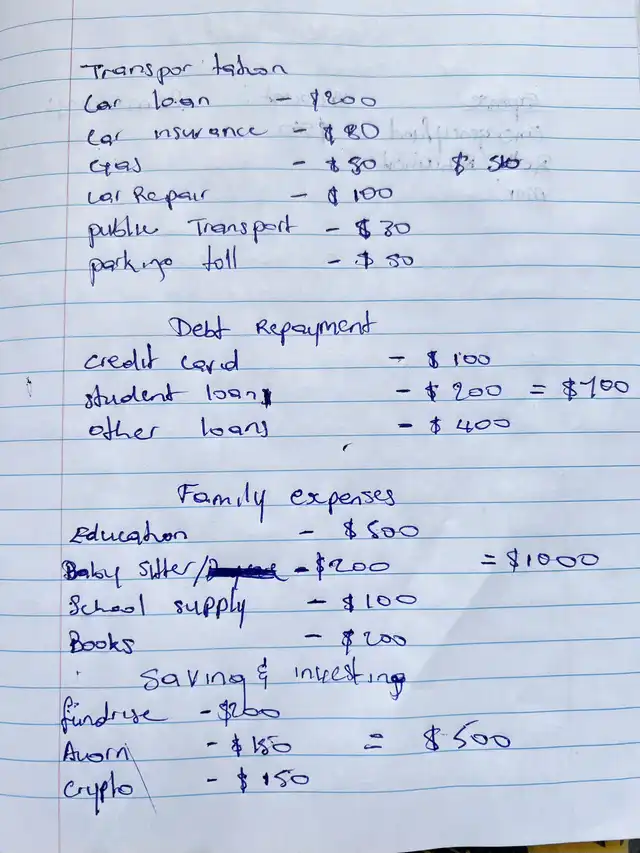 Transportation
Car loan - $200
Car insurance - $80
Gas - $50 $ 510
Car Repair - $100
public Transport - $30
parking toll - $50
Debt Repayment
credit card - $100
student loans - $200 = $700
other loans - $400
Family expenses
Education - $500
Baby sitter/ - $200 = $1000
School supply - $100
Books - $200
Saving & investing
fundrise - $200
Acorn - $150 = $500
Crypto - $150